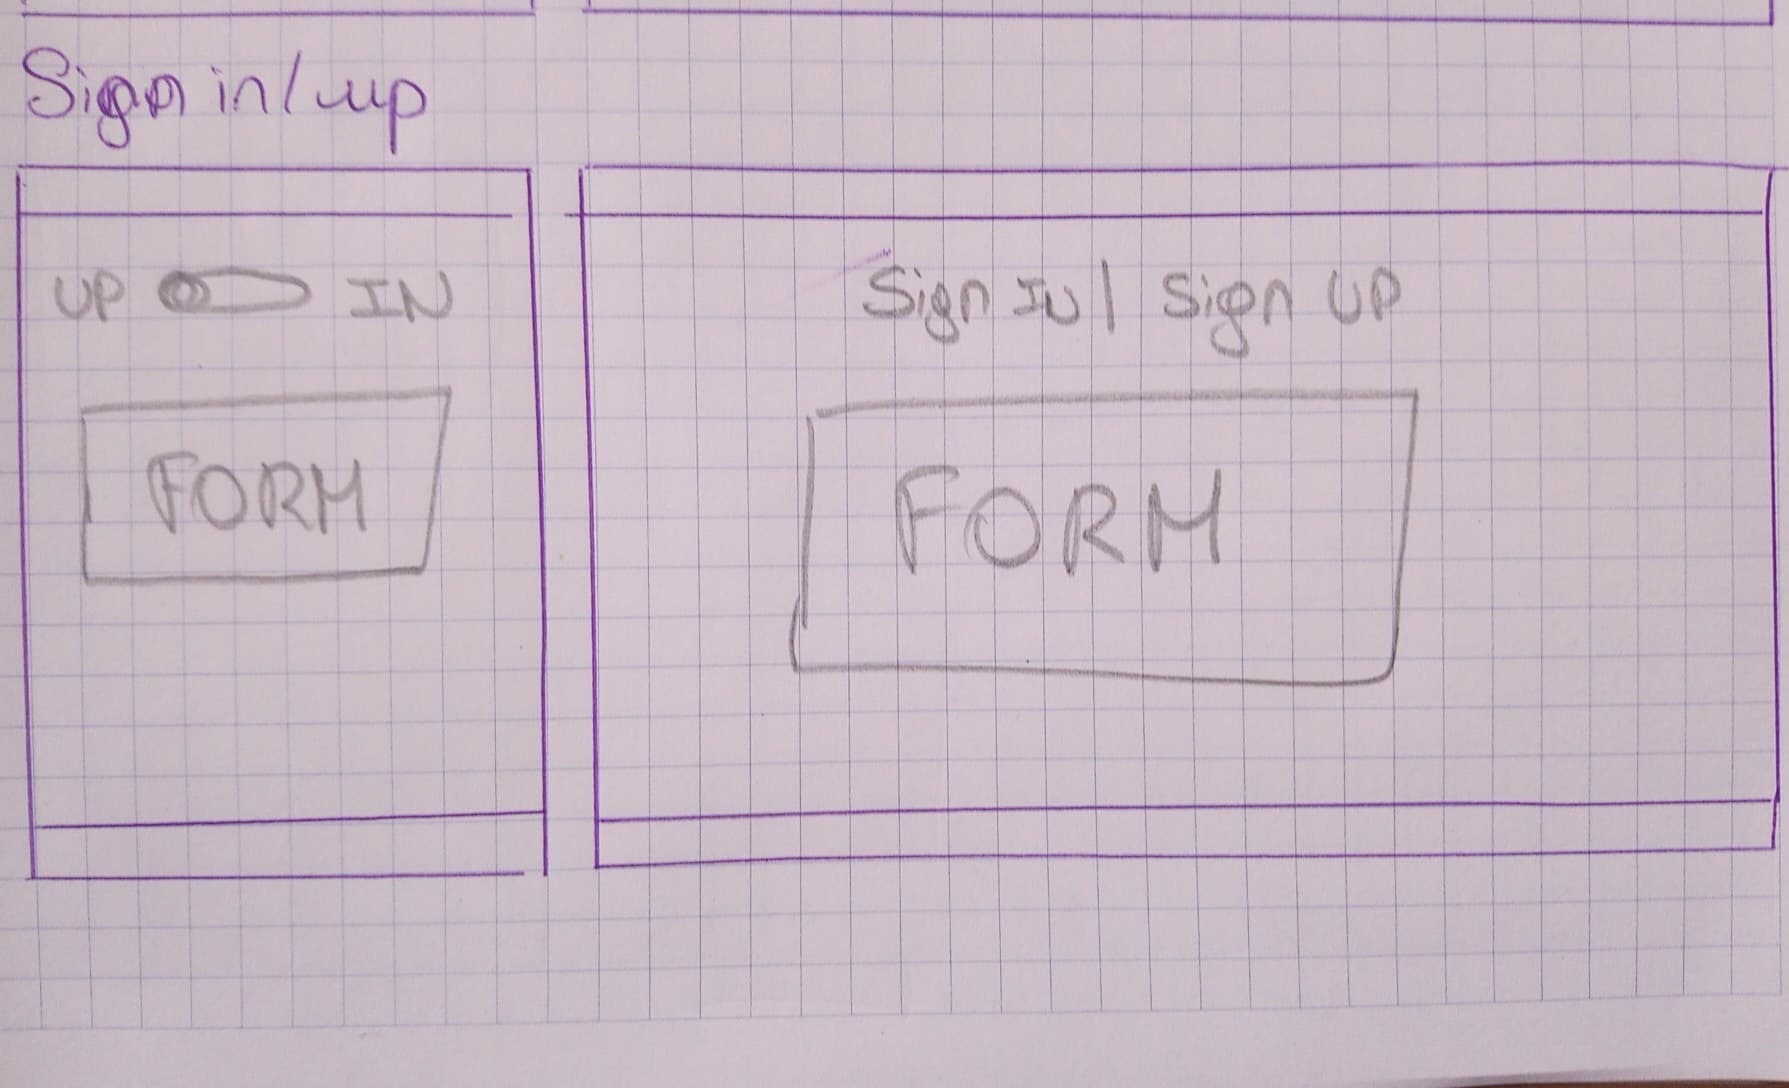 Sign in/up
UP IN
FORM
Sign IN | Sign UP
FORM